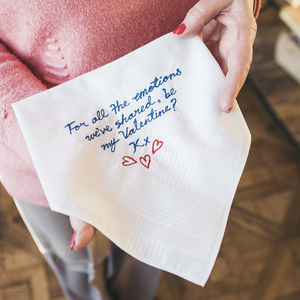 For all the emotions
we've shared, be
my Valentine?
Kx